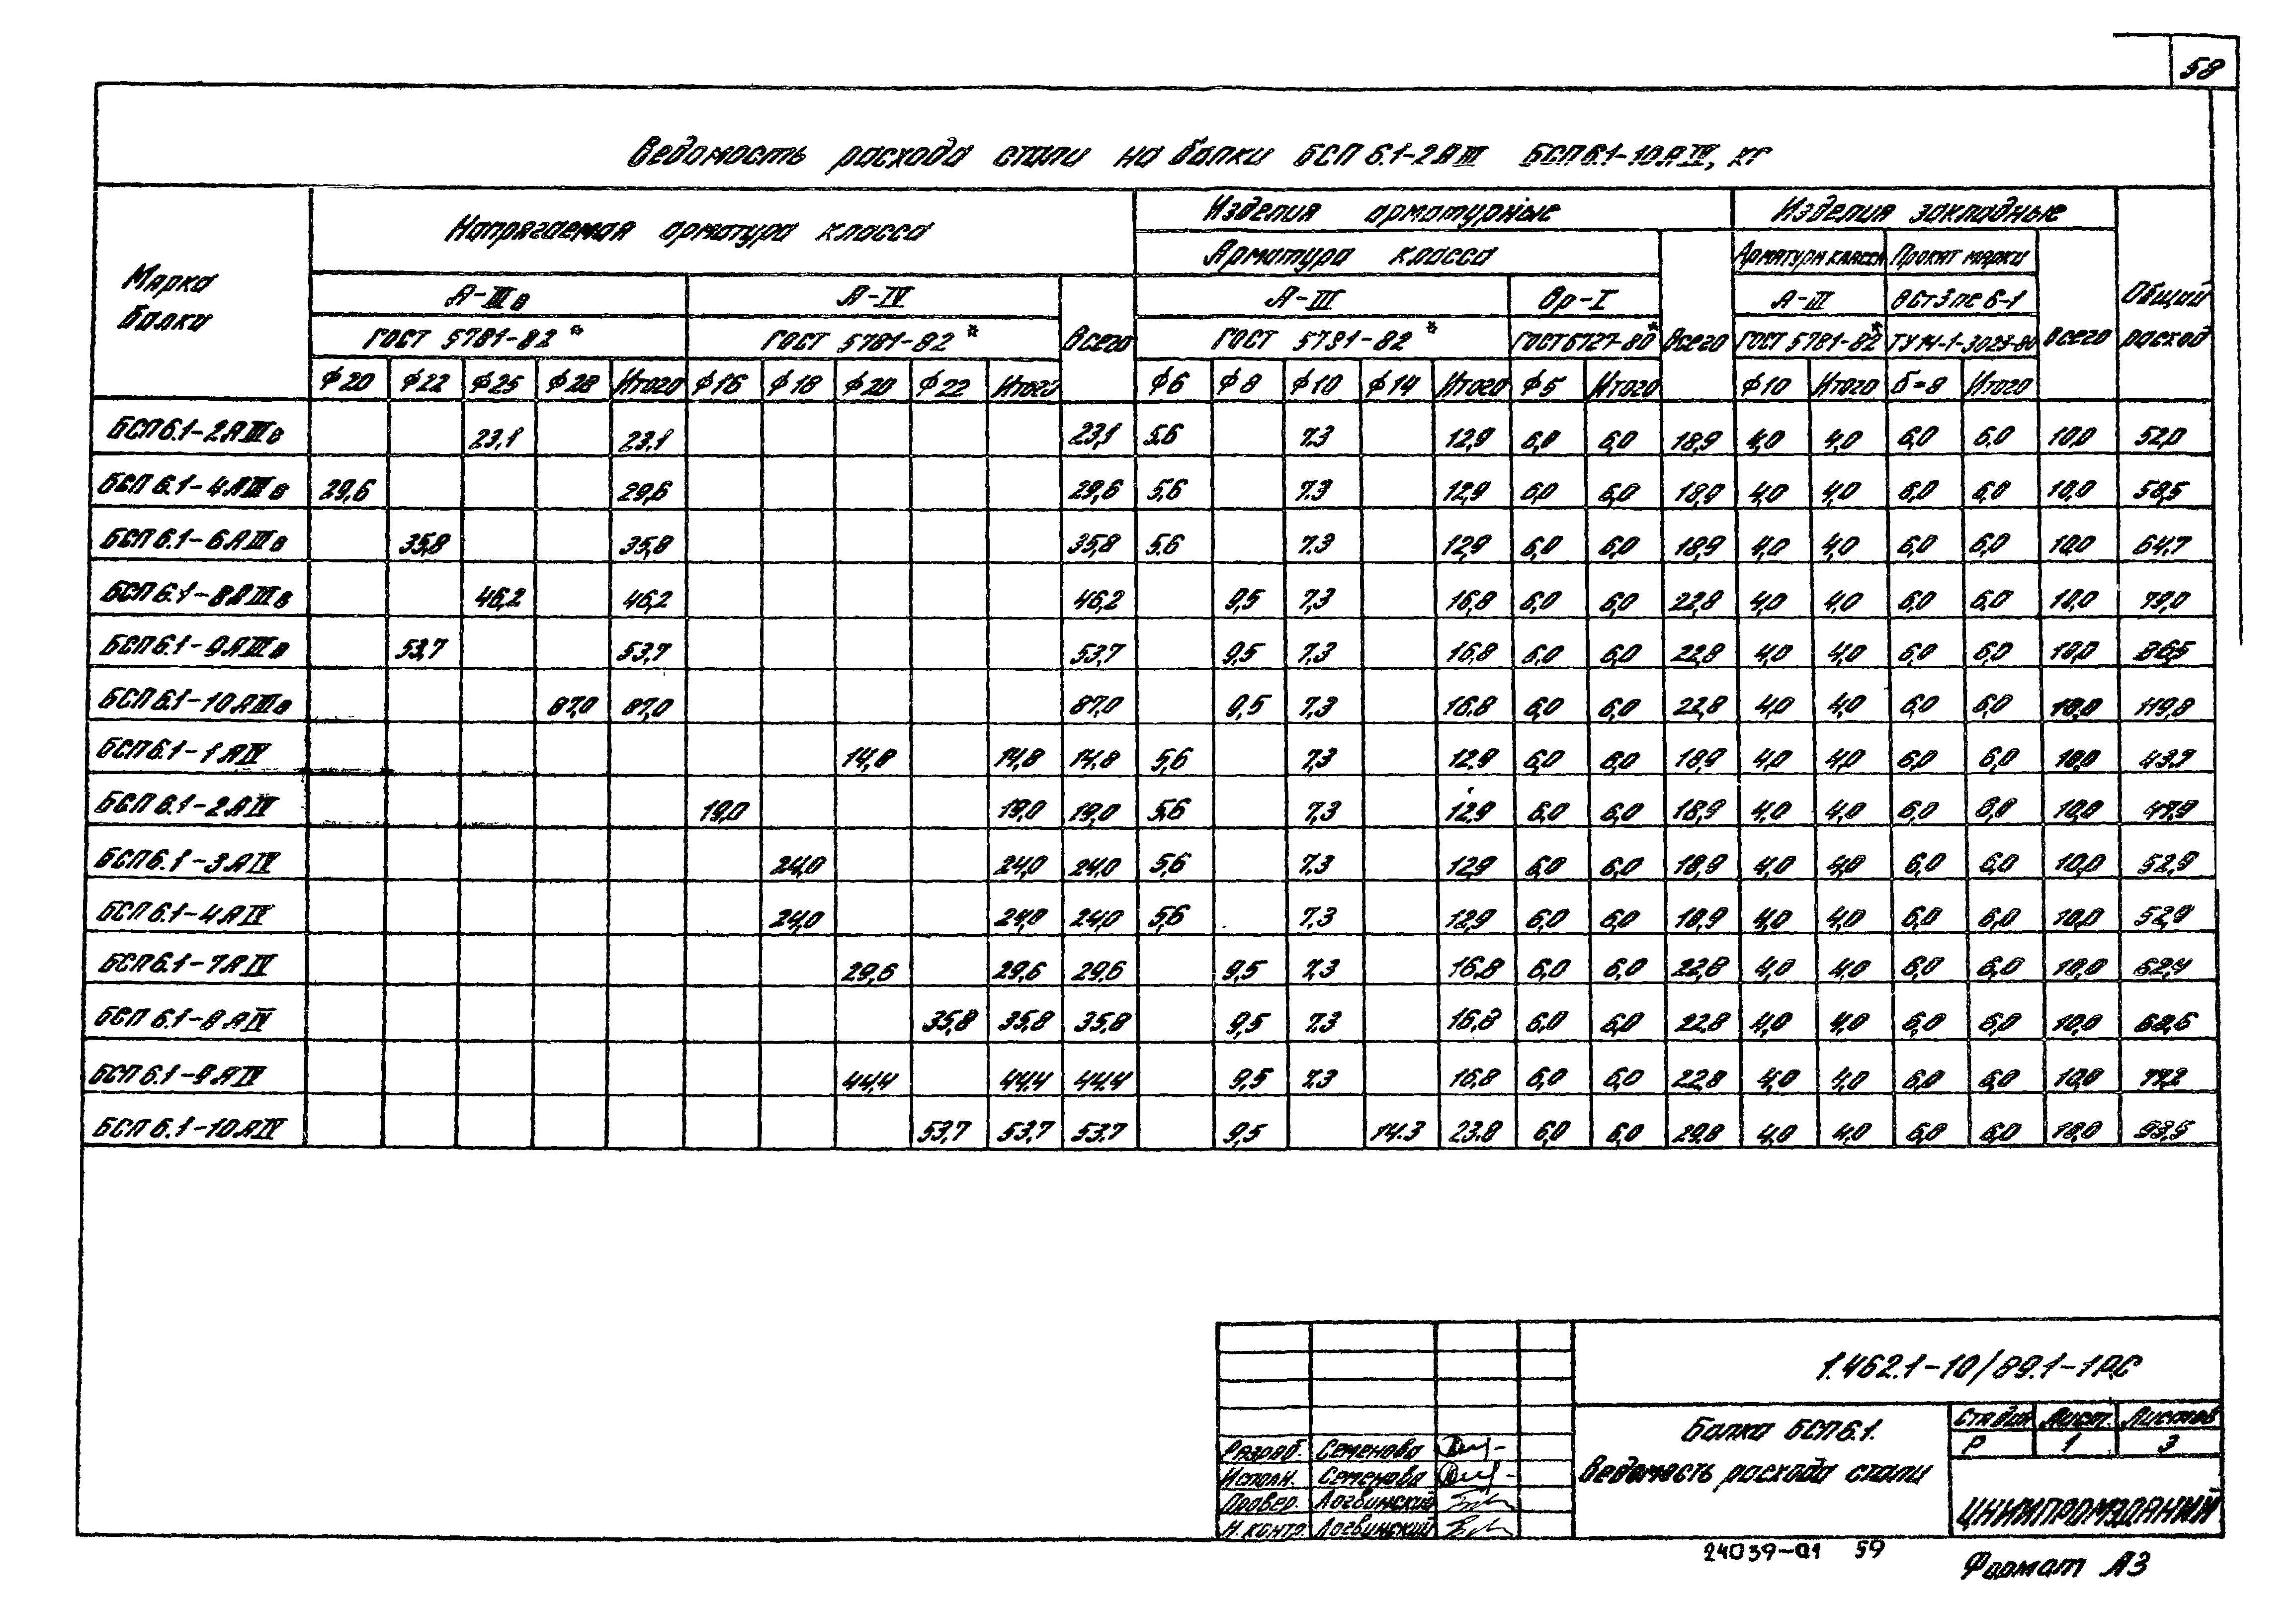 58
Ведомость расхода стали на балки БСП 6.1-2АIII БСП 6.1-10АIV, кг
Марка балки
Напрягаемая арматура класса
Изделия арматурные
Изделия закладные
Общий расход
Арматура класса
Всего
Арматура класса
Прокат марки
Всего
А-IIIв
А-IV
Всего
А-III
Вр-I
А-III
Вст3пс6-1
ГОСТ 5781-82*
ГОСТ 5781-82*
ГОСТ 5781-82*
ГОСТ 6727-80*
ГОСТ 5781-82*
ТУ14-1-3023-80
ф20 ф22 ф25 ф28 Итого ф16 ф18 ф20 ф22 Итого ф6 ф8 ф10 ф14 Итого ф5 Итого ф10 Итого δ=8 Итого
БСП6.1-2АIIIв 23,1 23,1 23,1 5,6 7,3 12,9 6,0 6,0 18,9 4,0 4,0 6,0 6,0 10,0 52,0
БСП 6.1-4АIIIв 29,6 29,6 29,6 5,6 7,3 12,9 6,0 6,0 18,9 4,0 4,0 6,0 6,0 10,0 58,5
БСП 6.1-6АIIIв 35,8 35,8 35,8 5,6 7,3 12,9 6,0 6,0 18,9 4,0 4,0 6,0 6,0 10,0 64,7
БСП 6.1-8АIIIв 46,2 46,2 46,2 9,5 7,3 16,8 6,0 6,0 22,8 4,0 4,0 6,0 6,0 10,0 79,0
БСП6.1-9АIIIв 53,7 53,7 53,7 9,5 7,3 16,8 6,0 6,0 22,8 4,0 4,0 6,0 6,0 10,0 86,5
БСП6.1-10АIIIв 87,0 87,0 87,0 9,5 7,3 16,8 6,0 6,0 22,8 4,0 4,0 6,0 6,0 10,0 119,8
БСП6.1-1АIV 14,8 14,8 14,8 5,6 7,3 12,9 6,0 6,0 18,9 4,0 4,0 6,0 6,0 10,0 43,7
БСП 6.1-2АIV 19,0 19,0 19,0 5,6 7,3 12,9 6,0 6,0 18,9 4,0 4,0 6,0 6,0 10,0 47,9
БСП6.1-3АIV 24,0 24,0 24,0 5,6 7,3 12,9 6,0 6,0 18,9 4,0 4,0 6,0 6,0 10,0 52,9
БСП 6.1-4АIV 24,0 24,0 24,0 5,6 7,3 12,9 6,0 6,0 18,9 4,0 4,0 6,0 6,0 10,0 52,9
БСП6.1-7АIV 29,6 29,6 29,6 9,5 7,3 16,8 6,0 6,0 22,8 4,0 4,0 6,0 6,0 10,0 62,4
БСП 6.1-8АIV 35,8 35,8 35,8 9,5 7,3 16,8 6,0 6,0 22,8 4,0 4,0 6,0 6,0 10,0 68,6
БСП 6.1-9АIV 44,4 44,4 44,4 9,5 7,3 16,8 6,0 6,0 22,8 4,0 4,0 6,0 6,0 10,0 77,2
БСП 6.1-10АIV 53,7 53,7 53,7 9,5 14,3 23,8 6,0 6,0 29,8 4,0 4,0 6,0 6,0 10,0 93,5
1.462.1-10/89.1-1РС
Разраб. Семенова
Исполн. Семенова
Провер. Логвинский
Н.контр. Логвинский
Балка БСП6.1.
Ведомость расхода стали
Стадия Лист Листов
Р 1 3
ЦНИИПРОМЗДАНИЙ
24039-01 59
Формат А3